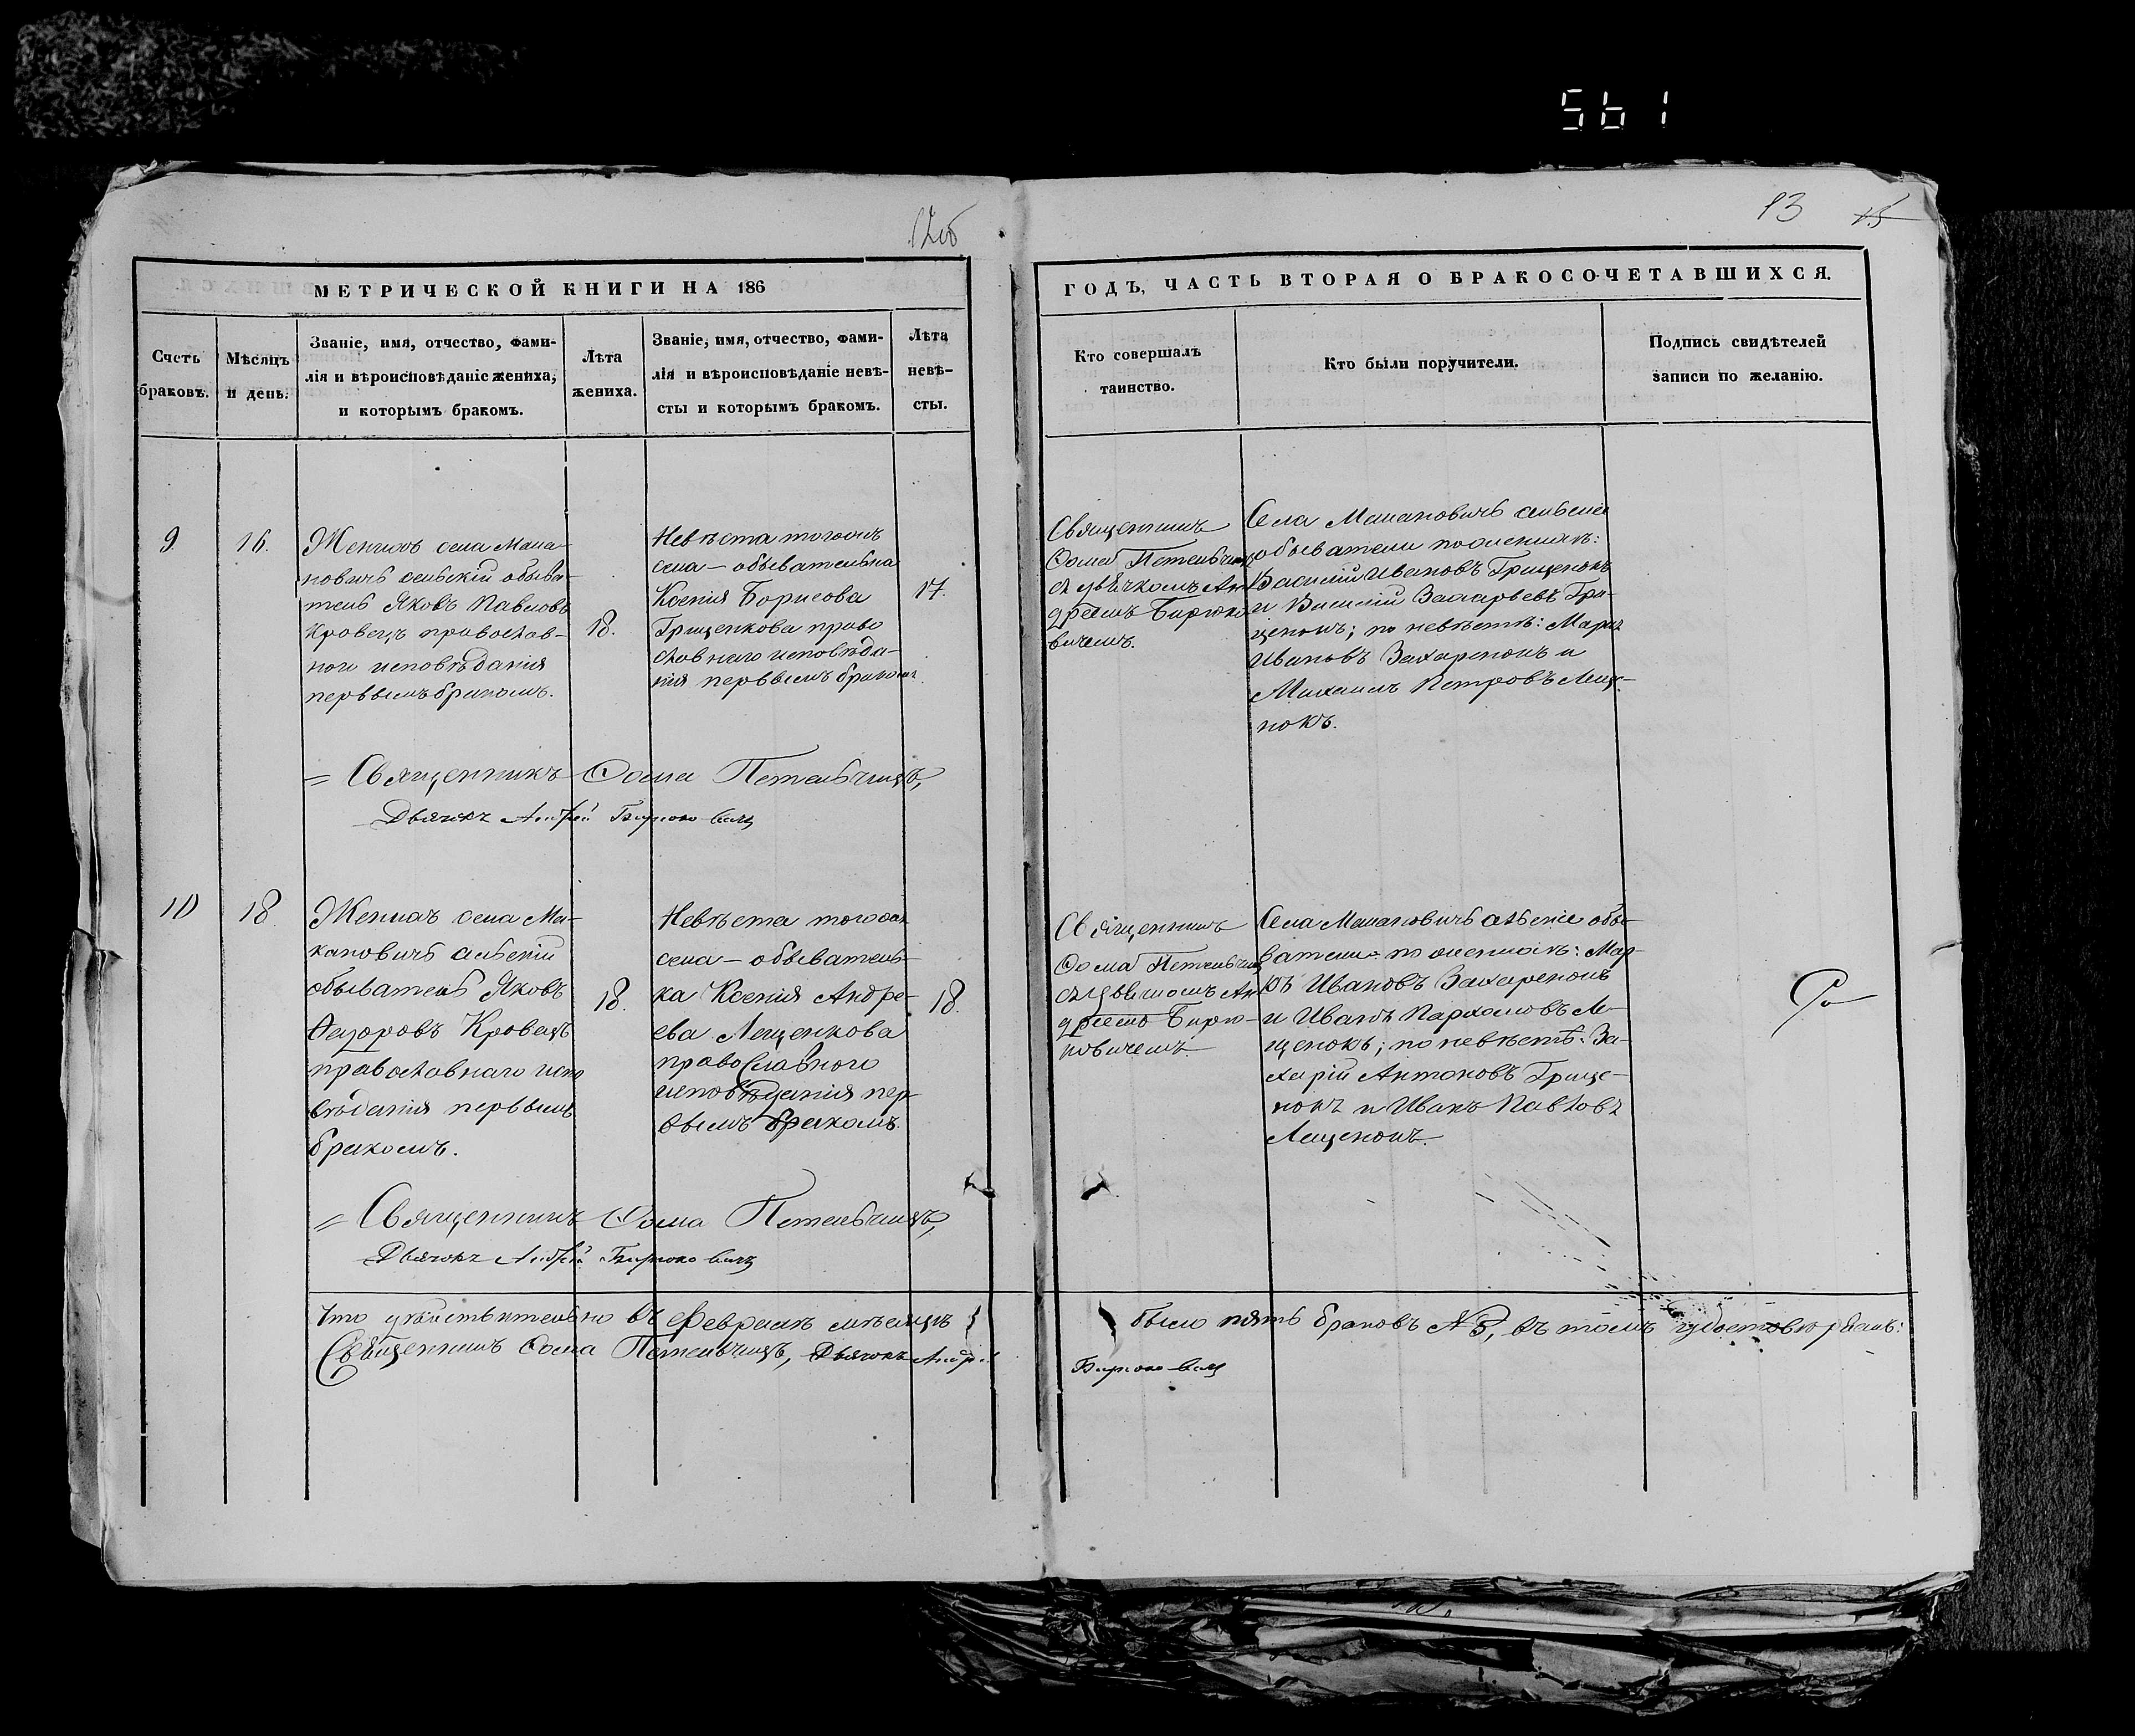 561
12об
13
15
МЕТРИЧЕСКОЙ КНИГИ НА 186
Счетъ браковъ.
Мѣсяцъ и день.
Званіе, имя, отчество, фами-
лія и вѣроисповѣданіе жениха,
и которымъ бракомъ.
Лѣта
жениха.
Званіе, имя, отчество, фами-
лія и вѣроисповѣданіе невѣ-
сты и которымъ бракомъ.
Лѣта
невѣ-
сты.
ГОДЪ, ЧАСТЬ ВТОРАЯ О БРАКОСОЧЕТАВШИХСЯ.
Кто совершалъ
таинство.
Кто были поручители.
Подпись свидѣтелей
записи по желанію.
9.
16.
Женихъ села Мака-
новичъ сельскій обыва-
тель Яковъ Павловъ
Кровецъ православ-
ного исповѣданія
первымъ бракомъ.
18.
Невѣста тогожъ
села - обывателька
Ксенія Борисова
Грищенкова право
славнаго исповѣда-
нія первымъ бракомъ
17.
Священникъ
Фома
съ дьячкомъ Ан
дреемъ Бирюко
вичемъ.
Села Макановичъ сельскіе
обыватели по женихѣ:
Василій Ивановъ Грищенокъ
и Василій Захарьевъ Гри-
щенокъ; по невѣстѣ: Марко
Ивановъ Захаренокъ и
Михаилъ Петровъ Леще-
нокъ.
= Священникъ Фома
Дьячокъ Андрей Бирюковичъ
10
18.
Женихъ села Ма-
кановичъ сельскій
обыватель Яковъ
Федоровъ Кровецъ
православнаго испо
вѣданія первымъ
бракомъ.
18.
Невѣста тогожъ
села - обыватель-
ка Ксенія Андре-
ева Лещенкова
православного
исповѣданія пер
вымъ бракомъ.
18.
Священникъ
Фома
съ дьячкомъ Ан
дреемъ Бирю-
ковичемъ.
Села Макановичъ сельскіе обы-
ватели по женихѣ: Мар-
ко Ивановъ Захаренокъ
и Иванъ Пархомовъ Ле-
щенокъ; по невѣстѣ: За-
харій Антоновъ Грище-
нокъ и Иванъ Павловъ
Лещенокъ.
= Священникъ Фома
Дьячокъ Андрей Бирюковичъ
Что дѣйствительно въ Февралѣ мѣсяцѣ было пять браковъ № 5, въ томъ удостовѣряемъ:
Священникъ Фома Дьячокъ Андрей Бирюковичъ